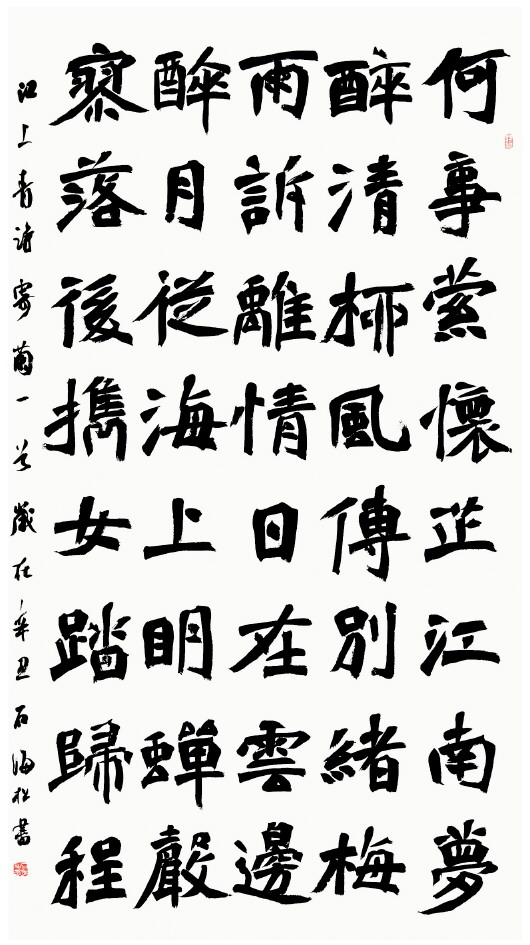 何事縈懷芷江南夢
醉清柳風傳別緒梅
雨訴離情日在雲邊
醉月從海上明蟬嚴
寥落後攜女踏歸程
江上青詩寄蘭一首歲在辛丑石海松書